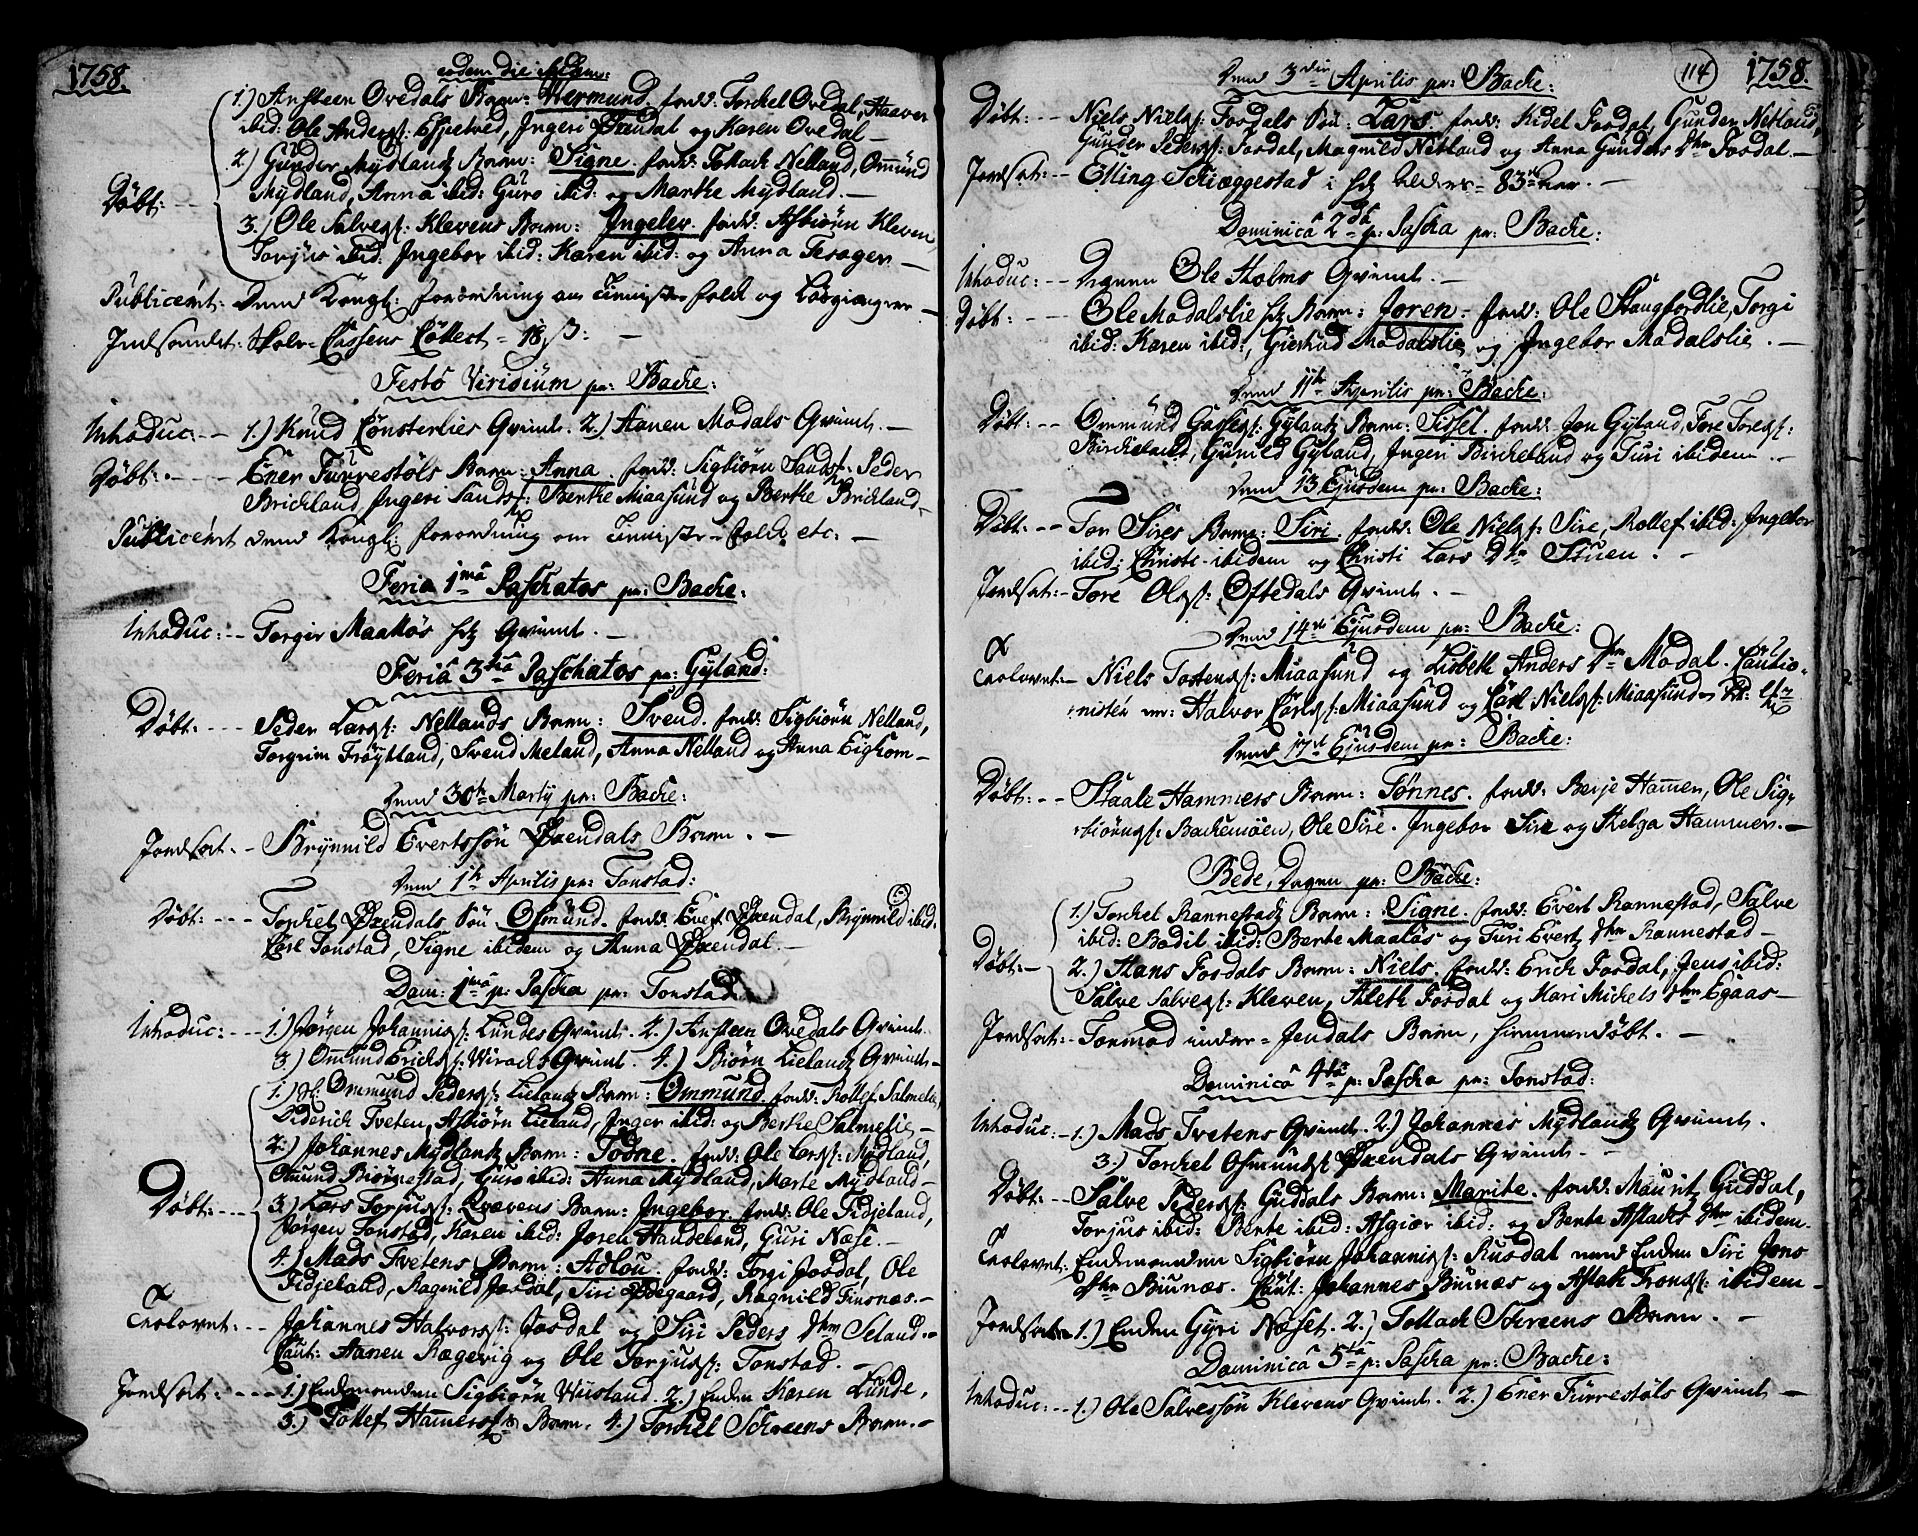 1758.
eodem die ibidem:
1.) Ansteen Ovedals Barn: Hermund. fadd: Torkel Ovedal, Haaver
ibid: Ole Anders: Espetved, Ingeri Øxendal og Karen Ovedal —
2.) Gunder Mydlands Barn: Signe. fadd: Tollach Nelland, Omund
Døbt: — Mydland, Anna ibid: Guro ibid: og Marthe Mydland. —
3.) Ole Salves: Klevens Barn: Ingelev. fadd: Asbiørn Kleven
Torjus ibid: Ingebor ibid: Karen ibid: og Anna Tesager —
Publicert: Dend Kongl: forordning om Tieniste folck og Løsgiengere —
Indsamlet: Skole-Cassens Collect - 18 s: —
Festo Viridium pa: Backe:
Introduc: — 1.) Knud Consterlies Qvinde. 2.) Aanen Modals Qvinde. —
Døbt: — Ener Furrestøls Barn: Anna. fadd: Sigbiørn Sands: Peder
Brickland, Ingeri Sands: Berthe Miaasund og Berthe Brickland —
Publicert dend Kongl: forordning om Tieniste-folck etc: —
Feria 1ma Paschatos pa: Backe:
Introduc: — Torgier Maaløs hs Qvinde. —
Feria 3tia Paschatos pa: Gyland:
Døbt: — Peder Lars: Nellands Barn: Svend. fadd: Sigbiørn Nelland,
Torgrim Frøytland, Svend Meland, Anna Nelland og Anna Eighom —
Dend 30te Martij pa: Backe:
Jordsat: — Brynnild Evertssøn Øxendals Barn. —
Dend 1te Aprilis pa: Tonstad:
Døbt: — Torckel Øxendals Søn Osmund. fadd: Evert Øxendal, Brynnild ibid.
Carl Tonstad, Signe ibidem og Anna Øxendal. —
Dom: 1ma p: Pascha pa: Tonstad:
Introduc: — 1.) Jørgen Johannis: Lundes Qvinde. 2.) Ansteen Ovedals Qvinde.
3.) Omund Erichs: Wiraks Qvinde. 4.) Biørn Lielands Qvinde —
1.) Ommund Peders: Lielands Barn: Ommund. fadd: Rollef Salmelie,
Diderich Tveten, Asbiørn Lieland, Inger ibid: og Berthe Salmelie —
2.) Johannes Mydlands Barn: Todne. fadd: Ole Lars: Mydland,
Omund Biørnestad, Guro ibid: Anna Mydland, Marte Mydland —
Døbt: — 3.) Lars Torjus: Qvævens Barn: Ingebor. fadd: Ole Fidjeland,
Jørgen Tonstad, Karen ibid: Joren Haudeland, Guri Næse. —
4.) Mads Tvetens Barn: Adlou. fadd: Torgi Josdal, Ole
Fidjeland, Ragnild Josdal, Siri Ødegaard, Ragnild Finsnæs. —
Trolovet: — Johannes Halvors: Josdal og Siri Peders Dtr Seland. —
Caut: Aanen Rægevig og Ole Torjus: Tonstad. —
Jordsat: — 1.) Enckemanden Sigbiørn Wiisland. 2.) Encken Karen Lunde,
3.) Tollef Hammers Barn. 4.) Torckel Schreens Barn. —
114
1758.
Dend 3die Aprilis pa: Backe:
Døbt: — Niels Niels: Fosdals Søn: Lars. fadd: Kidel Fosdal, Gunder Nitland,
Gunder Peders: Fosdal, Magnild Nitland og Anna Gunders Dtr Fosdal. —
Jordsat: — Elling Schieggestad i hs Alders - 83de aar. —
Dominica 2da p: Pascha pa: Backe:
Introduc: — Degnen Ole Holms Qvinde. —
Døbt: — Ole Modalslie hs Barn: Joren. fadd: Ole Haugfordlie, Torgi
ibid: Karen ibid:, Giertrud Modalslie og Ingebor Modalslie. —
Dend 11te Aprilis pa: Backe:
Døbt: — Ommund Gasses: Gylands Barn: Sissel. fadd: Jon Gyland, Tore Tores:
Birckeland, Gunild Gyland, Ingeri Birckeland og Turi ibidem. —
Dend 13 Ejusdem pa: Backe:
Døbt: — Tor Sires Barn: Siri. fadd: Ole Niels: Sire, Rollef ibid: Ingebor
ibid: Christi ibidem og Christi Lars Dtr Stuen. —
Jordsat: — Tore Ols: Oftedals Qvinde. —
Dend 14de Ejusdem pa: Backe:
Trolovet: — Niels Tostens: Miaasund og Lisbeth Anders Dtr Modal. Cautio-
nister er: Halvor Carls: Miaasund og Carl Niels: Miaasund
Dend 17de Ejusdem pa: Backe:
Døbt: — Staale Hammers Barn: Tønnes. fadd: Berje Hammer, Ole Sig-
biørns: Backemoen, Ole Sire. Ingebor Sire og Helga Hammer. —
Bede-Dagen pa: Backe:
1.) Torckel Rannestads Barn: Signe. fadd: Evert Rannestad, Salve
ibid: Bodil ibid: Berte Maaløs og Turi Everts Dtr Rannestad —
Døbt: — 2.) Hans Fosdals Barn: Niels. fadd: Erich Fosdal, Jens ibid:
Salve Salves: Kleven, Aleth Fosdal og Kari Michels Dtr Egaas —
Jordsat: — Tormod inder-Jendals Barn, hiemmedøbt. —
Dominica 4ta p: Pascha pa: Tonstad:
Introduc: — 1.) Mads Tvetens Qvinde. 2.) Johannes Mydlands Qvinde.
3.) Torckel Osmunds: Øxendals Qvinde. —
Døbt: — Salve Peders: Guddals Barn: Marite. fadd: Maurits Guddal,
Torjus ibid: Berte ibid: Asgier ibid: og Bente Aslachs Dtr ibidem.
Trolovet: Enckemanden Sigbiørn Johannis: Rusdal med Encken Siri Jons
Dtr Biunæs. Caut: Johannes Biunæs og Aslach Trons: ibidem —
Jordsat: — 1.) Encken Gyri Næset. 2.) Tollach Schreens Barn. —
Dominica 5ta p: Pascha pa: Backe:
Introduc: — 1.) Ole Salvessøn Klevens Qvinde. 2.) Ener Furrestøls Qvinde —